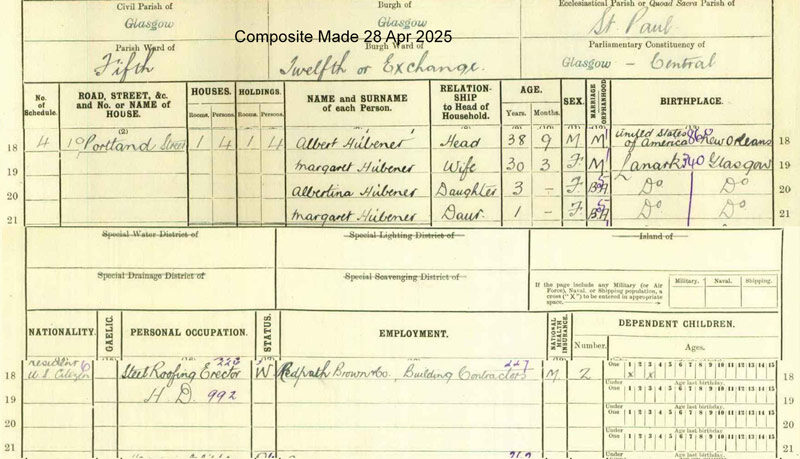 Civil Parish of
Glasgow
Burgh of
Glasgow
Ecclesiastical Parish or Quoad Sacra Parish of
St. Paul
Composite Made 28 Apr 2025
Parish Ward of
Fifth
Burgh Ward of
Twelfth or Exchange.
Parliamentary Constituency of
Glasgow – Central
No. of Schedule.
ROAD, STREET, &c. and No. or NAME of HOUSE.
HOUSES.
Rooms. Persons.
HOLDINGS.
Rooms. Persons.
NAME and SURNAME of each Person.
RELATIONSHIP to Head of Household.
AGE.
Years. Months.
SEX.
MARRIAGE or ORPHANHOOD
BIRTHPLACE.
(2)
18 4 10 Portland Street 1 4 1 4 Albert Hübener Head 38 9 M M United States of America 868 New Orleans 18
19 Margaret Hübener Wife 30 3 F M Lanark 340 Glasgow 19
20 Albertina Hübener Daughter 3 – F. Do Do 20
21 Margaret Hübener Daur. 1 – F. Do Do 21
Special Water District of
Special Lighting District of
Island of
Special Drainage District of
Special Scavenging District of
If the page include any Military (or Air Force), Naval, or Shipping population, a cross ("X") to be entered in appropriate space.
Military. Naval. Shipping.
NATIONALITY.
GAELIC.
PERSONAL OCCUPATION.
STATUS.
EMPLOYMENT.
NATIONAL HEALTH INSURANCE.
DEPENDENT CHILDREN.
Number.
Ages.
18 resident U S Citizen Steel Roofing Erector W Redpath Brown & Co, Building Contractors 227 M 2 One 1 2 3 4 5 6 7 8 9 10 11 12 13 14 15 18
x x
H D 992
19 Under One Age last birthday. 1 2 3 4 5 6 7 8 9 10 11 12 13 14 15 19
20 Under One Age last birthday. 1 2 3 4 5 6 7 8 9 10 11 12 13 14 15 20
21 Under One Age last birthday. 1 2 3 4 5 6 7 8 9 10 11 12 13 14 15 21
Under Age last birthday.